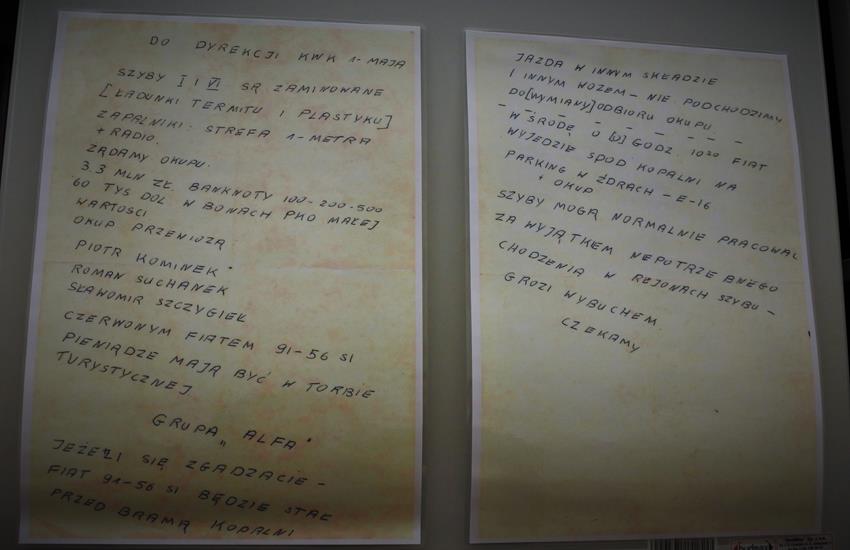 DO DYREKCJI KWK 1-MAJA
SZYBY I I VI SĄ ZAMINOWANE
[ŁADUNKI TERMITU I PLASTYKU]
ZAPALNIKI: STREFA 1-METRA
+ RADIO.
ŻĄDAMY OKUPU:
3.3 MLN ZŁ. BANKNOTY 100-200-500
60 TYS DOL W BONACH PKO MAŁEJ
WARTOŚCI
OKUP PRZENIOZĄ
PIOTR KOMINEK
ROMAN SUCHANEK
SŁAWOMIR SZCZYGIEŁ
CZERWONYM FIATEM 91-56 SI
PIENIĄDZE MAJĄ BYĆ W TORBIE
TURYSTYCZNEJ
GRUPA „ALFA"
JEŻELI SIĘ ZGADZACIE -
FIAT 91-56 SI BĘDZIE STAŁ
PRZED BRAMĄ KOPALNI
JAZDA W INNYM SKŁADZIE
I INNYM WOZEM - NIE PODCHODZIMY
DO[WYMIANY]ODBIORU OKUPU.
W ŚRODĘ O [O] GODZ. 10²⁰ FIAT
WYJEDZIE SPOD KOPALNI NA
PARKING W ŻORACH - E-16
+ OKUP
SZYBY MOGĄ NORMALNIE PRACOWAĆ
ZA WYJĄTKEM NEPOTRZEBNEGO
CHODZENIA W REJONACH SZYBU -
GROZI WYBUCHEM
CZEKAMY